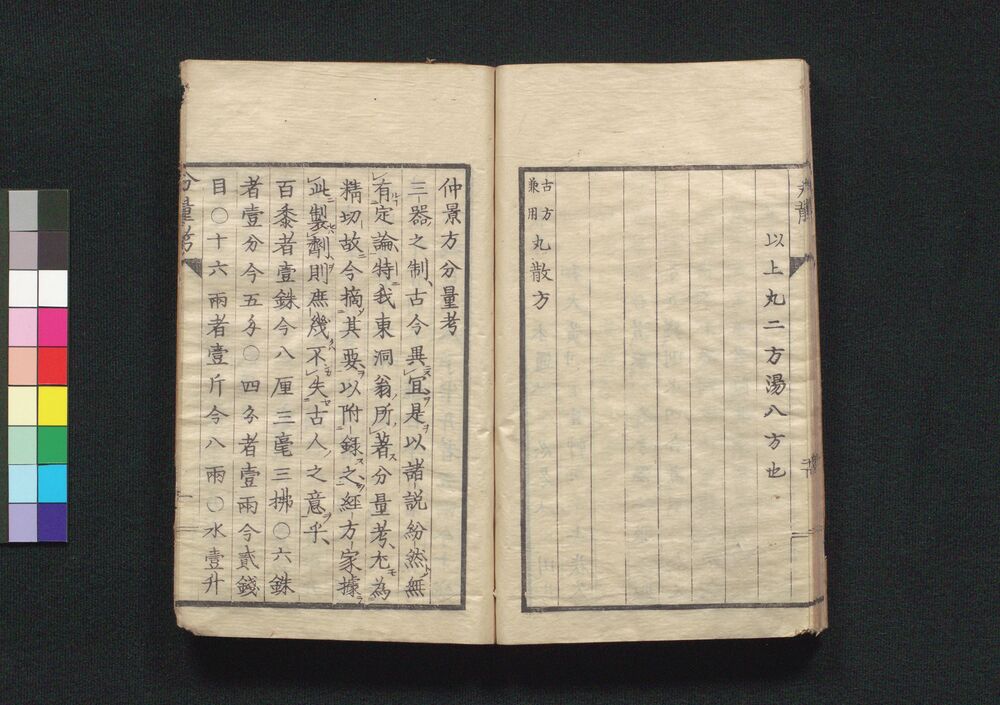 以上丸二方湯八方也
古方
兼用
丸散方
仲景方分量考
三器之制古今異宜是以諸説紛然無
有定論特我東洞翁所著分量考尤為
精切故今摘其要以附録之経方家據
此製劑則庶幾不失古人之意乎
百黍者壹銖今八厘三毫三拂〇六銖
者壹分今五匁〇四匁者壹兩今貳錢
目〇十六兩者壹斤今八兩〇水壹升
分量考